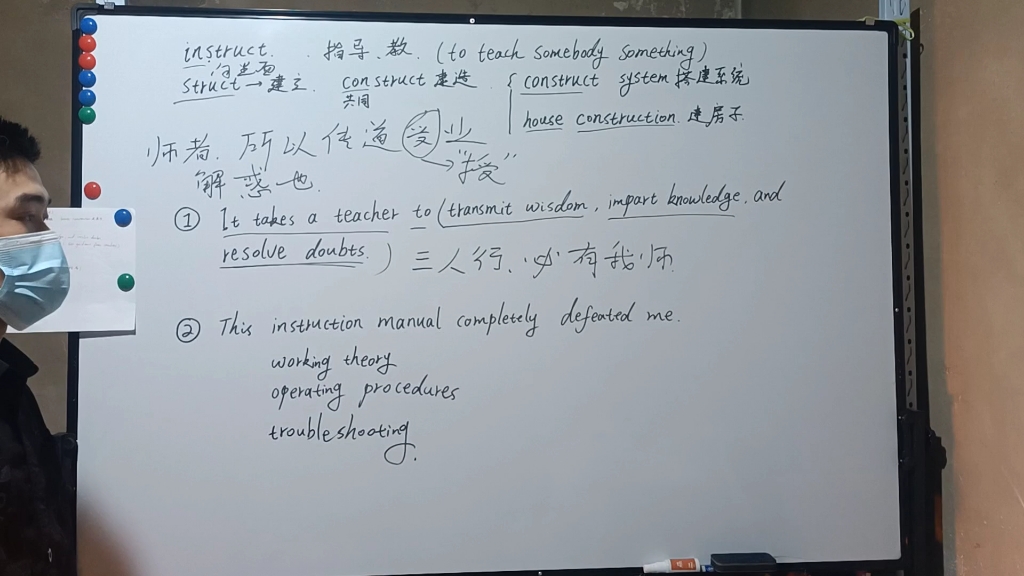 instruct. 指导、教. (to teach somebody something)
向里面
struct → 建立. construct 建造 { construct system 搭建系统
共同
house construction. 建房子.
师者. 所以传道受业
"授"
解惑也.
① It takes a teacher to (transmit wisdom, impart knowledge, and
resolve doubts.) 三人行、必有我师.
② This instruction manual completely defeated me.
working theory
operating procedures
troubleshooting.